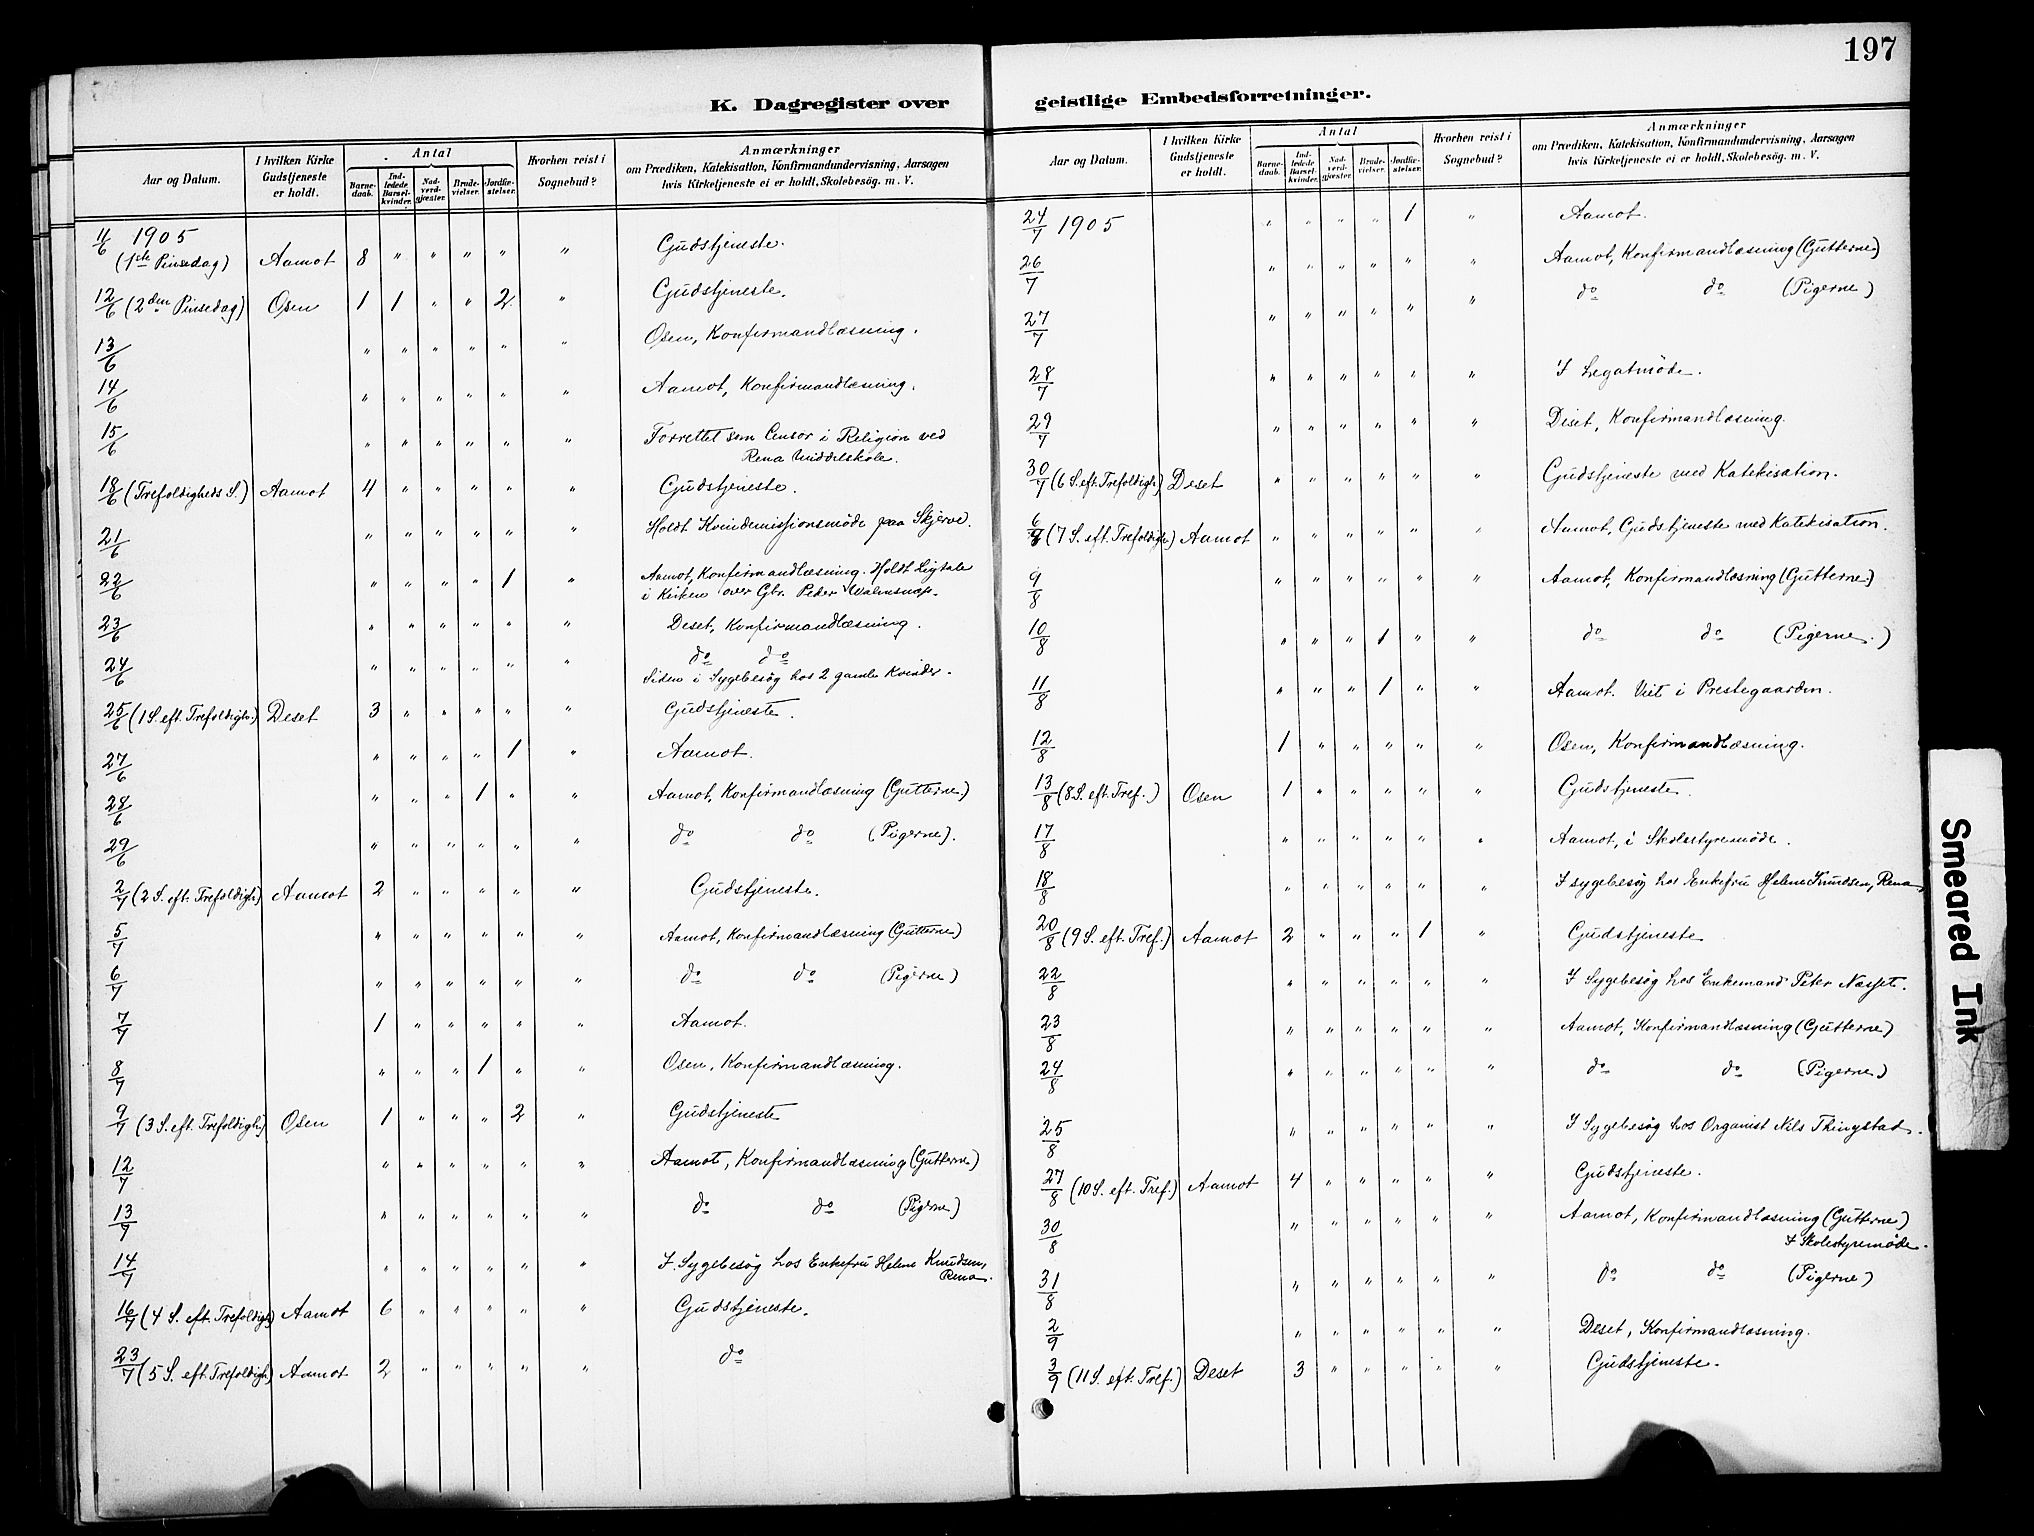 197
K. Dagregister over geistlige Embedsforretninger.
Aar og Datum.
I hvilken Kirke Gudstjeneste er holdt.
Antal
Barne-daab.
Ind-ledede Barsel-kvinder.
Nad-verd-gjæster.
Brude-vielser.
Jordfæ-stelser.
Hvorhen reist i Sognebud?
Anmærkninger
om Prædiken, Katekisation, Konfirmandundervisning, Aarsagen
hvis Kirketjeneste ei er holdt, Skolebesög. m. V.
11/6 1905 (1ste Pinsedag) Aamot 8 " " " " " Gudstjeneste.
12/6 (2den Pinsedag) Osen 1 1 " " 2 " Gudstjeneste.
13/6 " " " " " " Osen, Konfirmandlæsning.
14/6 " " " " " " Aamot, Konfirmandlæsning.
15/6 " " " " " " Forrettet som Censor i Religion ved
Rena Middelskole.
18/6 (Trefoldigheds S.) Aamot 4 " " " " " Gudstjeneste.
21/6 " " " " " " Holdt Kvindemissionsmöde paa Skjerve.
22/6 " " " " 1 " Aamot, Konfirmandlæsning. Holdt Ligtale
i Kirken over Gbr. Peder
23/6 " " " " " " Deset, Konfirmandlæsning.
24/6 " " " " " " do do
Siden i Sygebesög hos 2 gamle Kvinder.
25/6 (1 S. eft. Trefoldigh.) Deset 3 " " " " " Gudstjeneste.
27/6 " " " " 1 " Aamot.
28/6 " " " 1 " " Aamot, Konfirmandlæsning (Gutterne)
29/6 " " " " " " do do (Pigerne).
2/7 (2 S. eft. Trefoldigh.) Aamot 2 " " " " " Gudstjeneste.
5/7 " " " " " " Aamot, Konfirmandlæsning (Gutterne)
6/7 " " " " " " do do (Pigerne)
7/7 1 " " " " " Aamot.
8/7 " " " 1 " " Osen, Konfirmandlæsning.
9/7 (3 S. eft. Trefoldigh.) Osen 1 " " " 2 " Gudstjeneste
12/7 " " " " " " Aamot, Konfirmandlæsning (Gutterne)
13/7 " " " " " " do do (Pigerne)
14/7 " " " " " " I Sygebesög hos Enkefru Helene Knudsen,
Rena.
16/7 (4 S. eft. Trefoldigh.) Aamot 6 " " " " " Gudstjeneste.
23/7 (5 S. eft. Trefoldigh.) Aamot 2 " " " " " do
Aar og Datum.
I hvilken Kirke Gudstjeneste er holdt.
Antal
Barne-daab.
Ind-ledede Barsel-kvinder.
Nad-verd-gjæster.
Brude-vielser.
Jordfæ-stelser.
Hvorhen reist i Sognebud?
Anmærkninger
om Prædiken, Katekisation, Konfirmandundervisning, Aarsagen
hvis Kirketjeneste ei er holdt, Skolebesög. m. V.
24/7 1905 " " " " 1 " Aamot.
26/7 " " " " " " Aamot, Konfirmandlæsning (Gutterne)
27/7 " " " " " " do do (Pigerne)
28/7 " " " " " " I Legatmöde.
29/7 " " " " " " Deset, Konfirmandlæsning.
30/7 (6 S. eft. Trefoldigh.) Deset " " " " " " Gudstjeneste med Katekisation.
6/8 (7 S. eft. Trefoldigh.) Aamot " " " " " " Aamot, Gudstjeneste med Katekisation.
9/8 " " " " " " Aamot, Konfirmandlæsning (Gutterne.)
10/8 " " " 1 " " do do (Pigerne.)
11/8 " " " 1 " " Aamot. Viet i Prestegaarden.
12/8 1 " " " " " Osen, Konfirmandlæsning.
13/8 (8 S. eft. Tref.) Osen 1 " " " " " Gudstjeneste.
17/8 " " " " " " Aamot, i Skolestyremöde.
18/8 " " " " " " I sygebesög hos Enkefru Helene Knudsen, Rena
20/8 (9 S. eft. Tref.) Aamot 2 " " " 1 " Gudstjeneste
22/8 " " " " " " I Sygebesög hos Enkemand Peter Næsset.
23/8 " " " " " " Aamot, Konfirmandlæsning (Gutterne)
24/8 " " " " " " do do (Pigerne)
25/8 " " " " " " I Sygebesög hos Organist Nils Thingstad.
27/8 (10 S. eft. Tref.) Aamot 4 " " " " " Gudstjeneste.
30/8 " " " " " " Aamot, Konfirmandlæsning (Gutterne)
I Skolestyremöde.
31/8 " " " " " " do do (Pigerne)
2/9 " " " " " " Deset, Konfirmandlæsning.
3/9 (11 S. eft. Tref.) Deset 3 " " " " " Gudstjeneste.
Smeared Ink